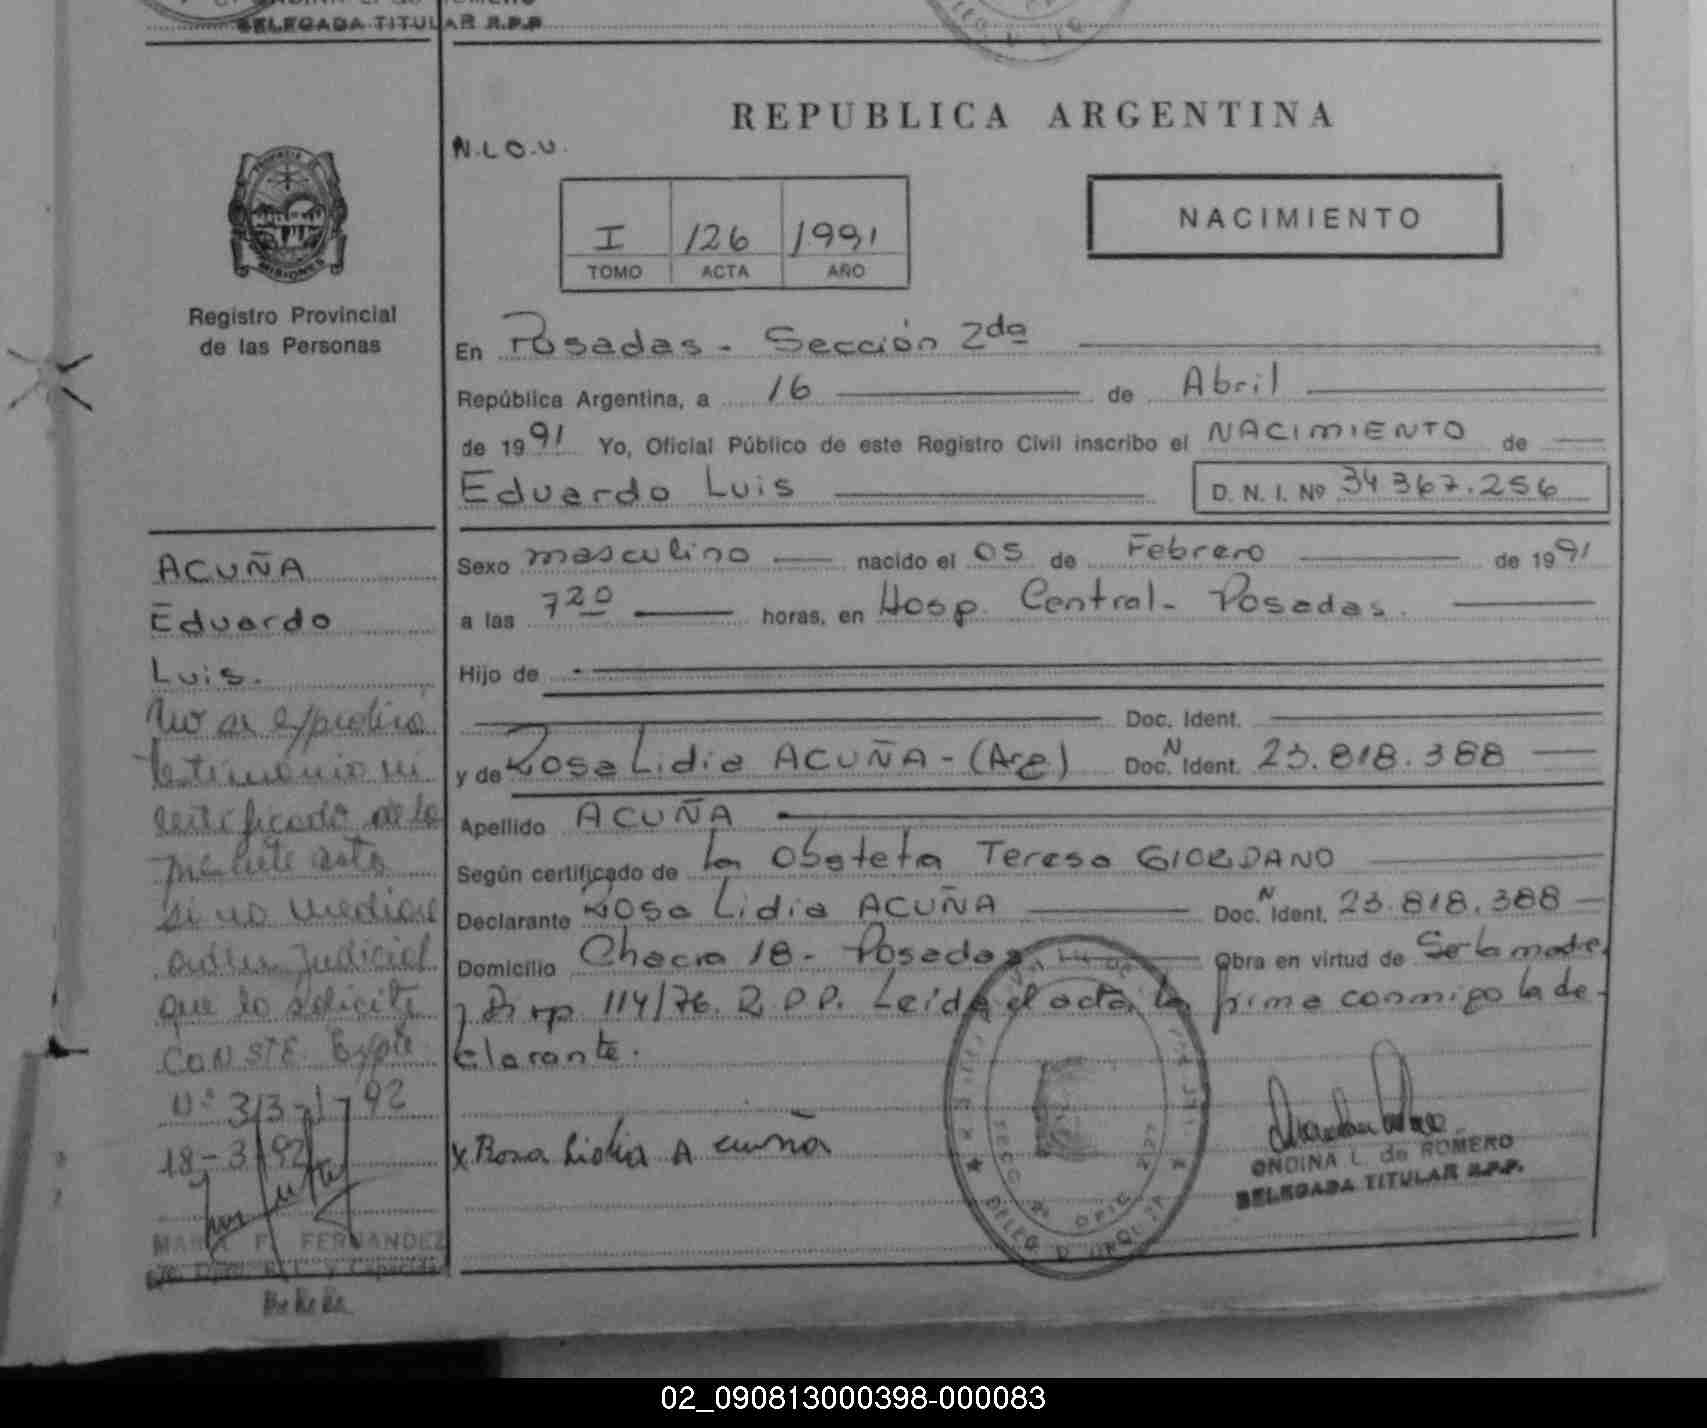 DELEGADA TITULAR R.P.P.
REPUBLICA ARGENTINA
N.L.O.U.
NACIMIENTO
I 126 1991
TOMO ACTA AÑO
PROVINCIA DE
MISIONES
Registro Provincial
de las Personas
En Posadas - Sección 2da
República Argentina, a 16 de Abril
de 1991 Yo, Oficial Público de este Registro Civil inscribo el NACIMIENTO de
Eduardo Luis D. N. I. Nº 34 367.256
ACUÑA
Eduardo
Luis.
No se expedirá
testimonio ni
certificado de la
presente acta
si no mediare
orden Judicial
que lo solicite
CONSTE. Expte
Nº 313-1-92
18-3-92
MARIA F. FERNANDEZ
Sexo masculino nacido el 05 de Febrero de 1991
a las 7 20 horas, en Hosp. Central - Posadas.
Hijo de
Doc. Ident.
y de Rosa Lidia ACUÑA - (Arg) Doc. N Ident. 23.818.388
Apellido ACUÑA
Según certificado de la Obsteta Teresa GIORDANO
Declarante Rosa Lidia ACUÑA Doc. N Ident. 23.818.388
Domicilio Chacra 18 - Posadas Obra en virtud de Ser la madre
y Disp. 114/76. R.P.P. Leída el acta, la firma conmigo la de-
clarante.
x Rosa Lidia Acuña
ONDINA L. de ROMERO
DELEGADA TITULAR R.P.P.
02_090813000398-000083